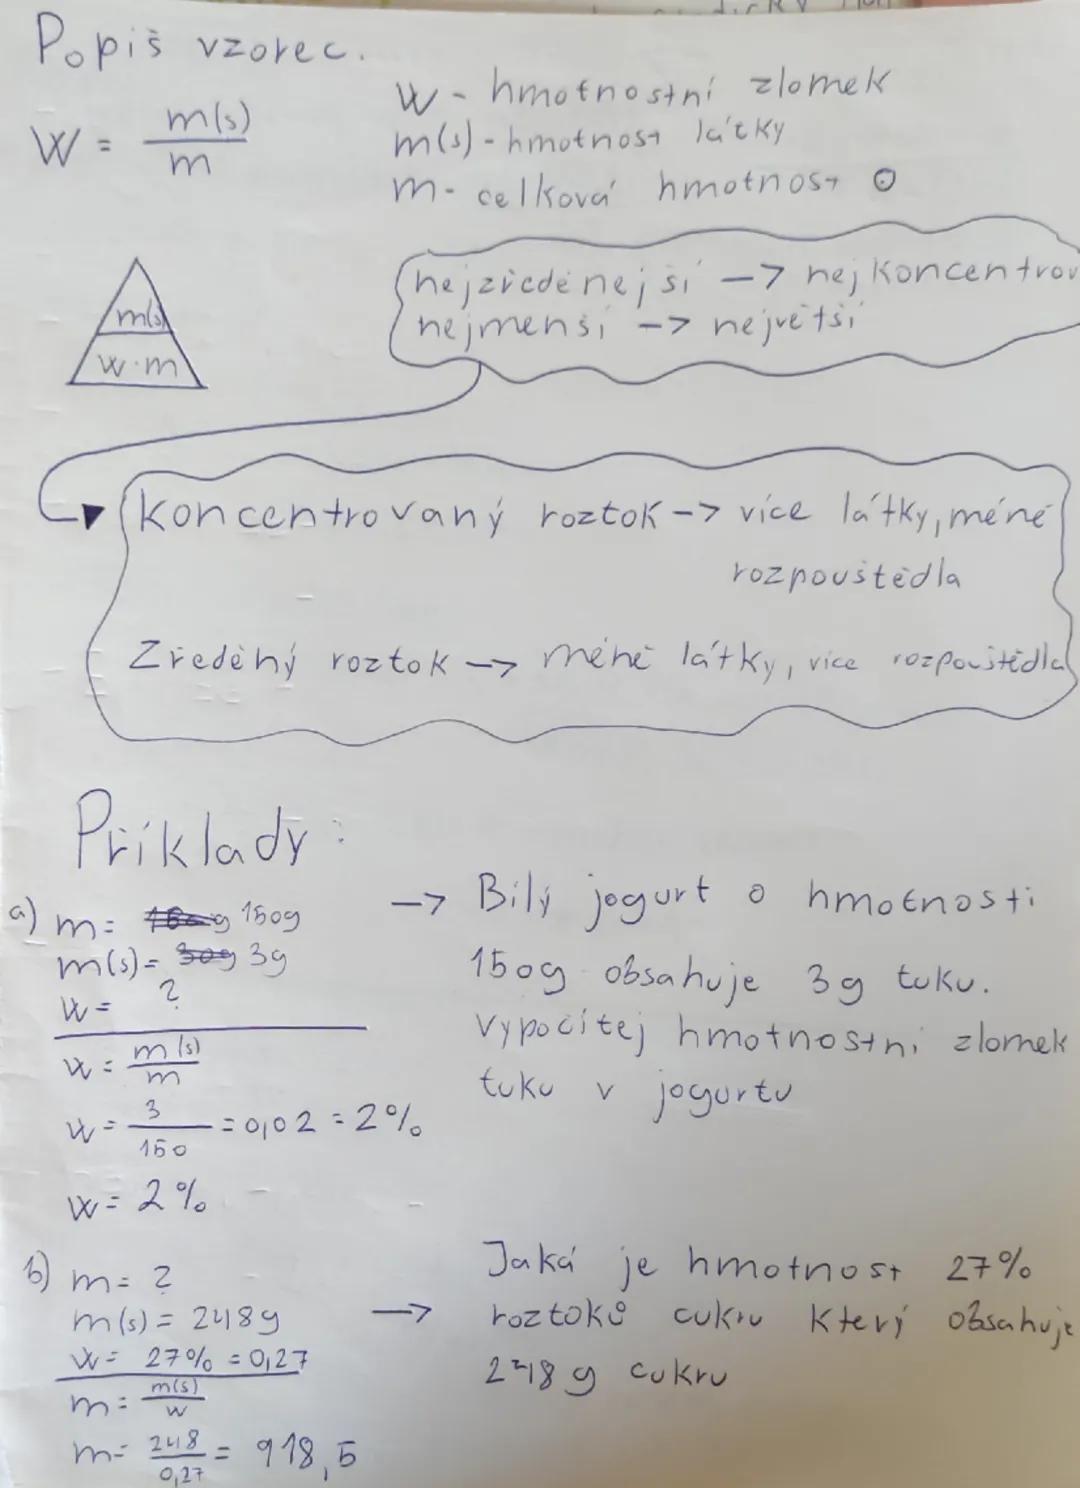 Popiš vzorec.
W = m(s)/m
w - hmotnostní zlomek
m(s) - hmotnost látky
m - celková hmotnost ⊙
m(s)
w·m
nejzředěnejší -> nejkoncentrov
nejmenší -> největší
Koncentrovaný roztok -> více látky, méně
rozpouštědla
Zředěný roztok -> méně látky, více rozpouštědla
Příklady:
a) m = 150g
m(s) = 3g
w = ?
w = m(s)/m
w = 3/150 = 0,02 = 2%
w = 2%
-> Bílý jogurt o hmotnosti
150g obsahuje 3g tuku.
Vypočítej hmotnostní zlomek
tuku v jogurtu
b) m = ?
m(s) = 248g
w = 27% = 0,27
m = m(s)/w
m = 248/0,27 = 918,5
Jaká je hmotnost 27%
-> roztoků cukru který obsahuje
248g cukru